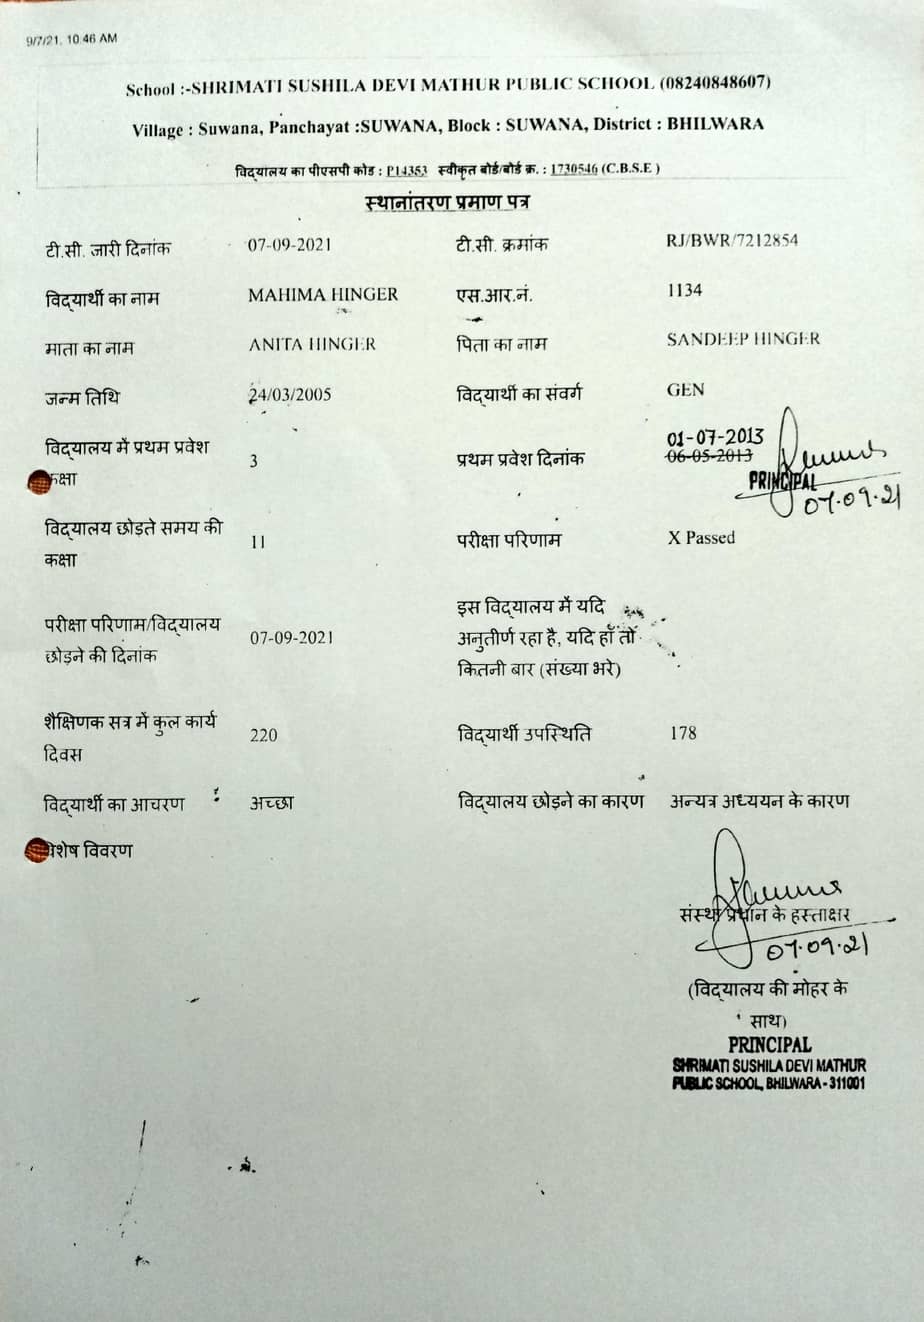 9/7/21, 10:46 AM
School :-SHRIMATI SUSHILA DEVI MATHUR PUBLIC SCHOOL (08240848607)
Village : Suwana, Panchayat :SUWANA, Block : SUWANA, District : BHILWARA
विद्यालय का पीएसपी कोड : P14353 स्वीकृत बोर्ड/बोर्ड क्र. : 1730546 (C.B.S.E )
स्थानांतरण प्रमाण पत्र
टी.सी. जारी दिनांक 07-09-2021 टी.सी. क्रमांक RJ/BWR/7212854
विद्यार्थी का नाम MAHIMA HINGER एस.आर.नं. 1134
माता का नाम ANITA HINGER पिता का नाम SANDEEP HINGER
जन्म तिथि 24/03/2005 विद्यार्थी का संवर्ग GEN
विद्यालय में प्रथम प्रवेश
कक्षा 3 प्रथम प्रवेश दिनांक 01-07-2013
06-05-2013
PRINCIPAL
07.09.21
विद्यालय छोड़ते समय की
कक्षा 11 परीक्षा परिणाम X Passed
परीक्षा परिणाम/विद्यालय
छोड़ने की दिनांक 07-09-2021
इस विद्यालय में यदि
अनुतीर्ण रहा है, यदि हाँ तो
कितनी बार (संख्या भरे)
शैक्षिणक सत्र में कुल कार्य
दिवस 220 विद्यार्थी उपस्थिति 178
विद्यार्थी का आचरण : अच्छा विद्यालय छोड़ने का कारण अन्यत्र अध्ययन के कारण
विशेष विवरण
संस्था प्रधान के हस्ताक्षर
07.09.21
(विद्यालय की मोहर के
साथ)
PRINCIPAL
SHRIMATI SUSHILA DEVI MATHUR
PUBLIC SCHOOL, BHILWARA - 311001